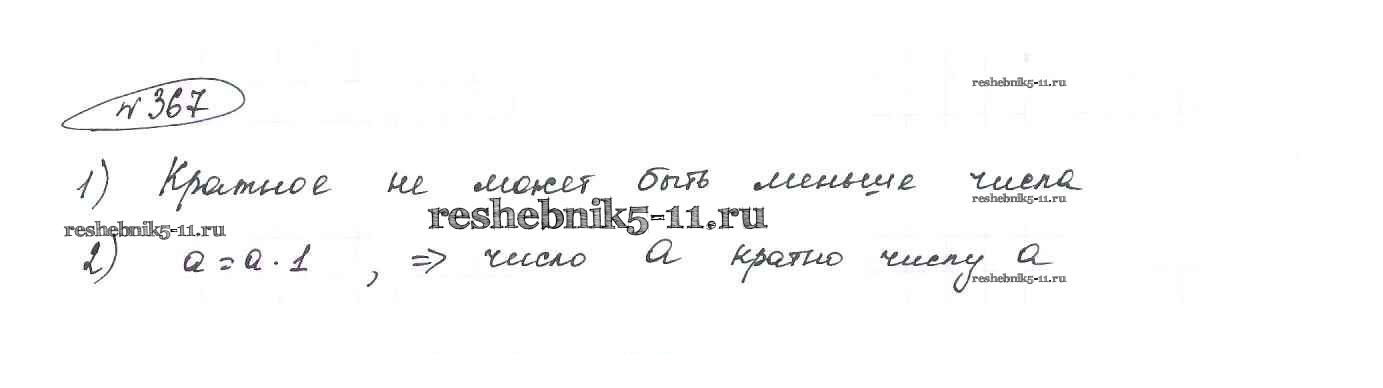 reshebnik5-11.ru
№ 367
1) Кратное не может быть меньше числа
reshebnik5-11.ru
reshebnik5-11.ru
reshebnik5-11.ru
2) a = a · 1 , => число a кратно числу a
reshebnik5-11.ru